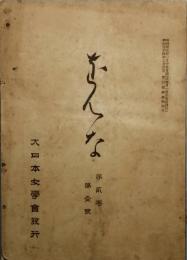 をんな
第貳卷
第壹號
大日本女學會發行